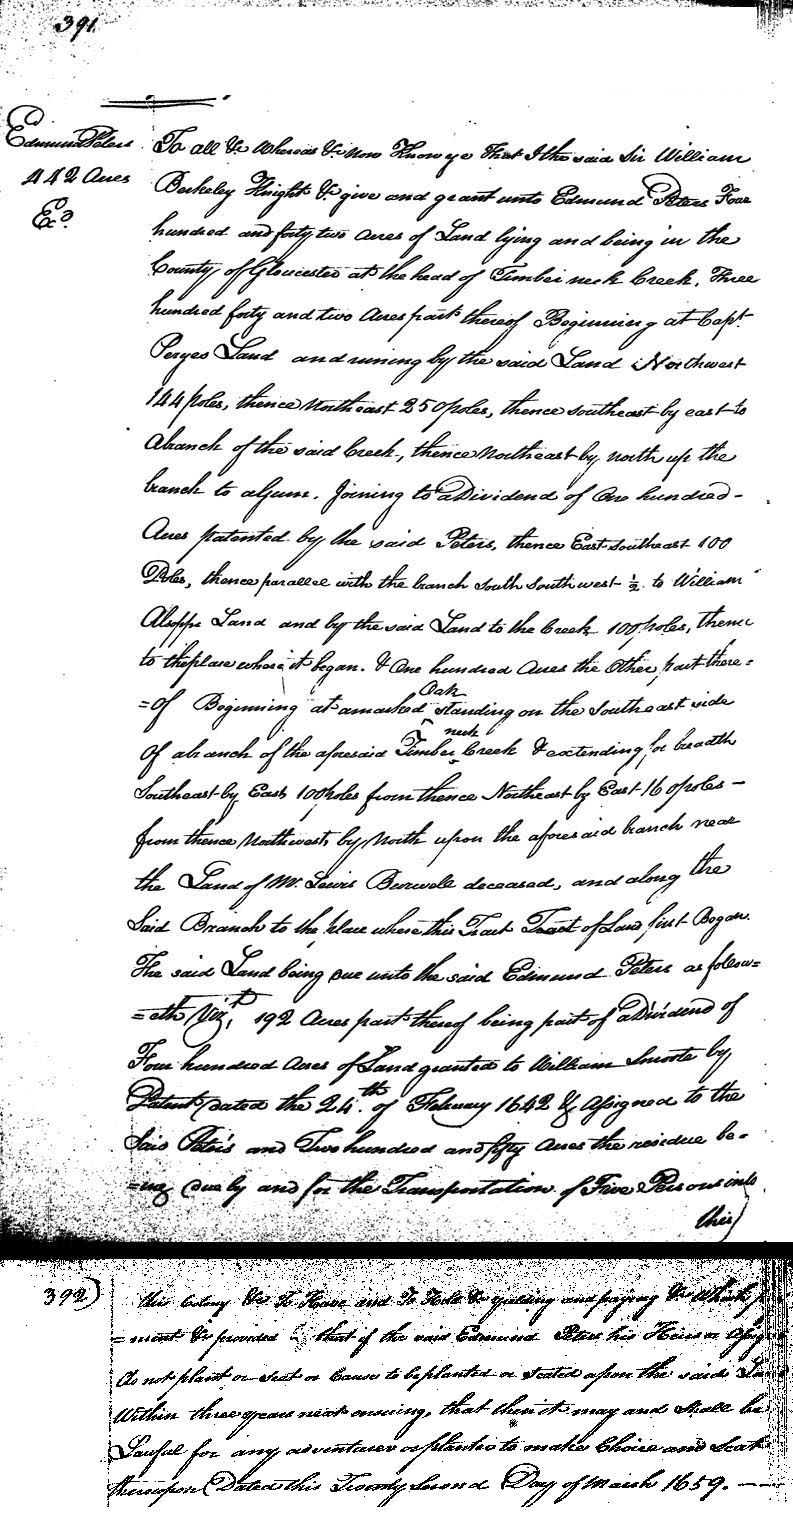 391
Edmund Peters
442 Acres
Exd.
To all &c Whereas &c now Know ye that I the said Sir William
Berkeley Knight &c give and grant unto Edmund Peters Four
hundred and forty two Acres of Land lying and being in the
County of Gloucester at the head of Timber neck Creek, Three
hundred forty and two Acres part thereof Beginning at Capt.
Peryes Land and runing by the said Land Northwest
144 poles, thence Northeast 250 poles, thence southeast by east to
a branch of the said Creek, thence Northeast by north up the
branch to a Gum, Joining to a Dividend of One hundred-
Acres patented by the said Peters, thence East southeast 100
Poles, thence parallel with the branch South Southwest ½ to William
Alsopps Land and by the said Land to the Creek 100 poles, thence
to the place where it began. & One hundred Acres the Other part there=
=of Beginning at a marked Oak standing on the Southeast side
Of a branch of the aforesaid Timber neck Creek & extending for breadth
Southeast by East 100 poles from thence Northeast by East 160 poles -
from thence Northwest by North upon the aforesaid branch near
the Land of Mr. Lewis Burwell deceased, and along the
Said Branch to the place where this Tract Tract of Land first Began.
The said Land being due unto the said Edmund Peters as follow=
=eth Vizt, 192 Acres part thereof being part of a Dividend of
Four hundred Acres of Land granted to William Smoote by
Patent dated the 24th. of February 1642 & Assigned to the
Said Peters and Two hundred and fifty Acres the residue be=
=ing due by and for the Transportation of Five Persons into
this)
392)
this Colony &c To Have and To Hold &c yielding and paying &c Which
=ment &c provided that if the said Edmund Peters his Heirs or
do not plant or seat or Cause to be planted or seated upon the said
Within three years next ensuing, that then it may and Shall be
Lawful for any adventurer or planter to make Choice and Seat
thereupon Dated this Twenty Second Day of March 1659.